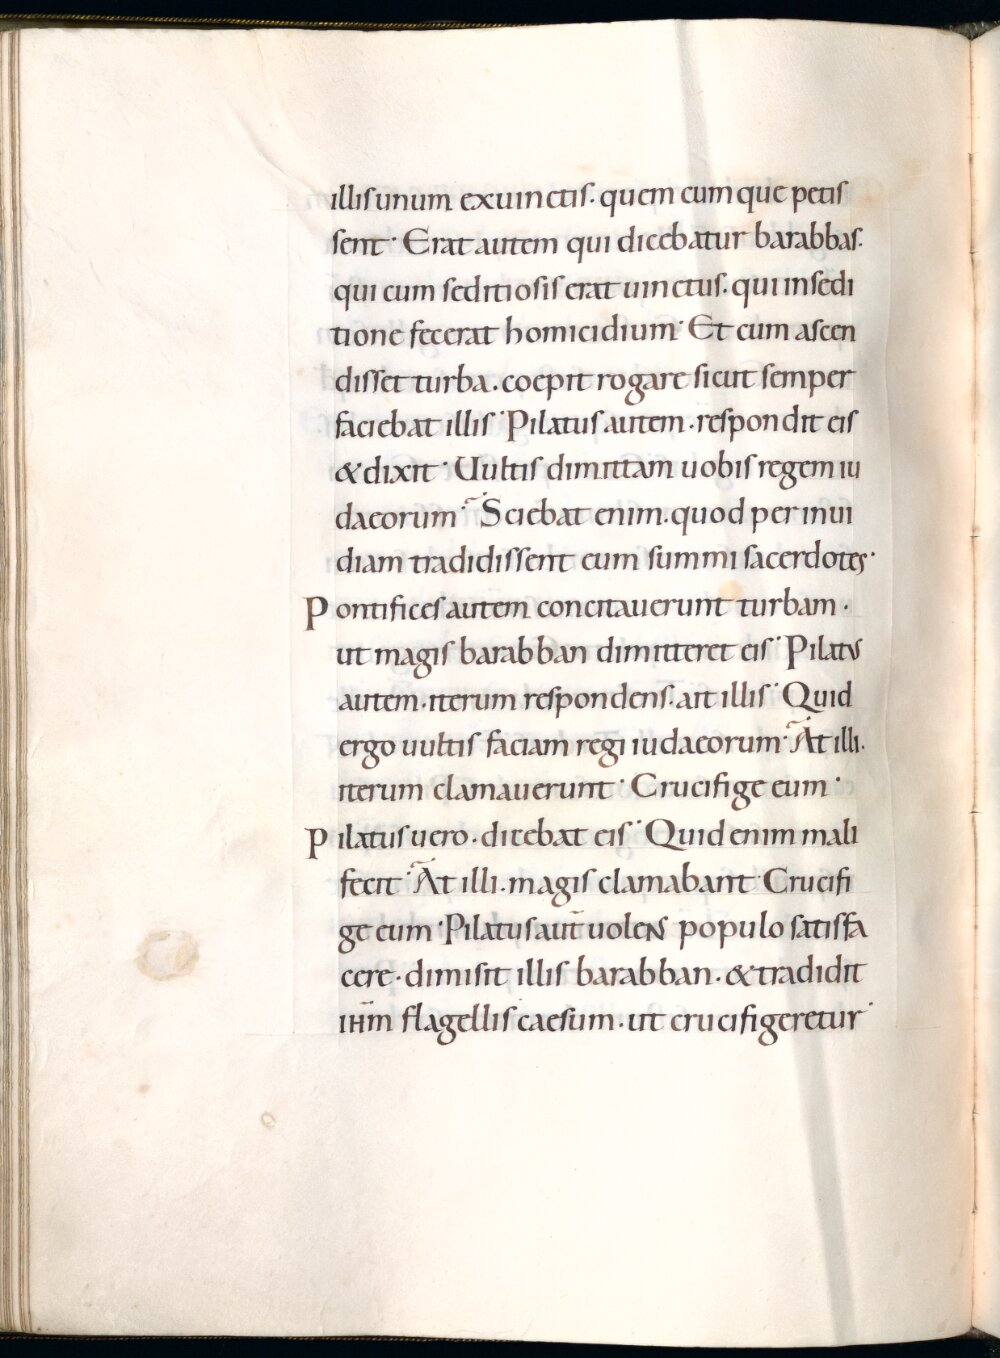 illis unum ex uinctis. quem cumque petis
sent. Erat autem qui dicebatur barabbas.
qui cum seditiosis erat uinctus. qui in sedi
tione fecerat homicidium. Et cum ascen
disset turba. coepit rogare sicut semper
faciebat illis. Pilatus autem. respondit eis
& dixit. Uultis dimittam uobis regem iu
daeorum. Sciebat enim. quod per inui
diam tradidissent eum summi sacerdotes.
Pontifices autem concitauerunt turbam.
ut magis barabban dimitteret eis. Pilatus
autem. iterum respondens. ait illis. Quid
ergo uultis faciam regi iudaeorum. At illi.
iterum clamauerunt. Crucifige eum.
Pilatus uero. dicebat eis. Quid enim mali
fecit. At illi. magis clamabant. Crucifi
ge eum. Pilatus aut̄ uolens populo satisfa
cere. dimisit illis barabban. & tradidit
ih̄m flagellis caesum. ut crucifigeretur.